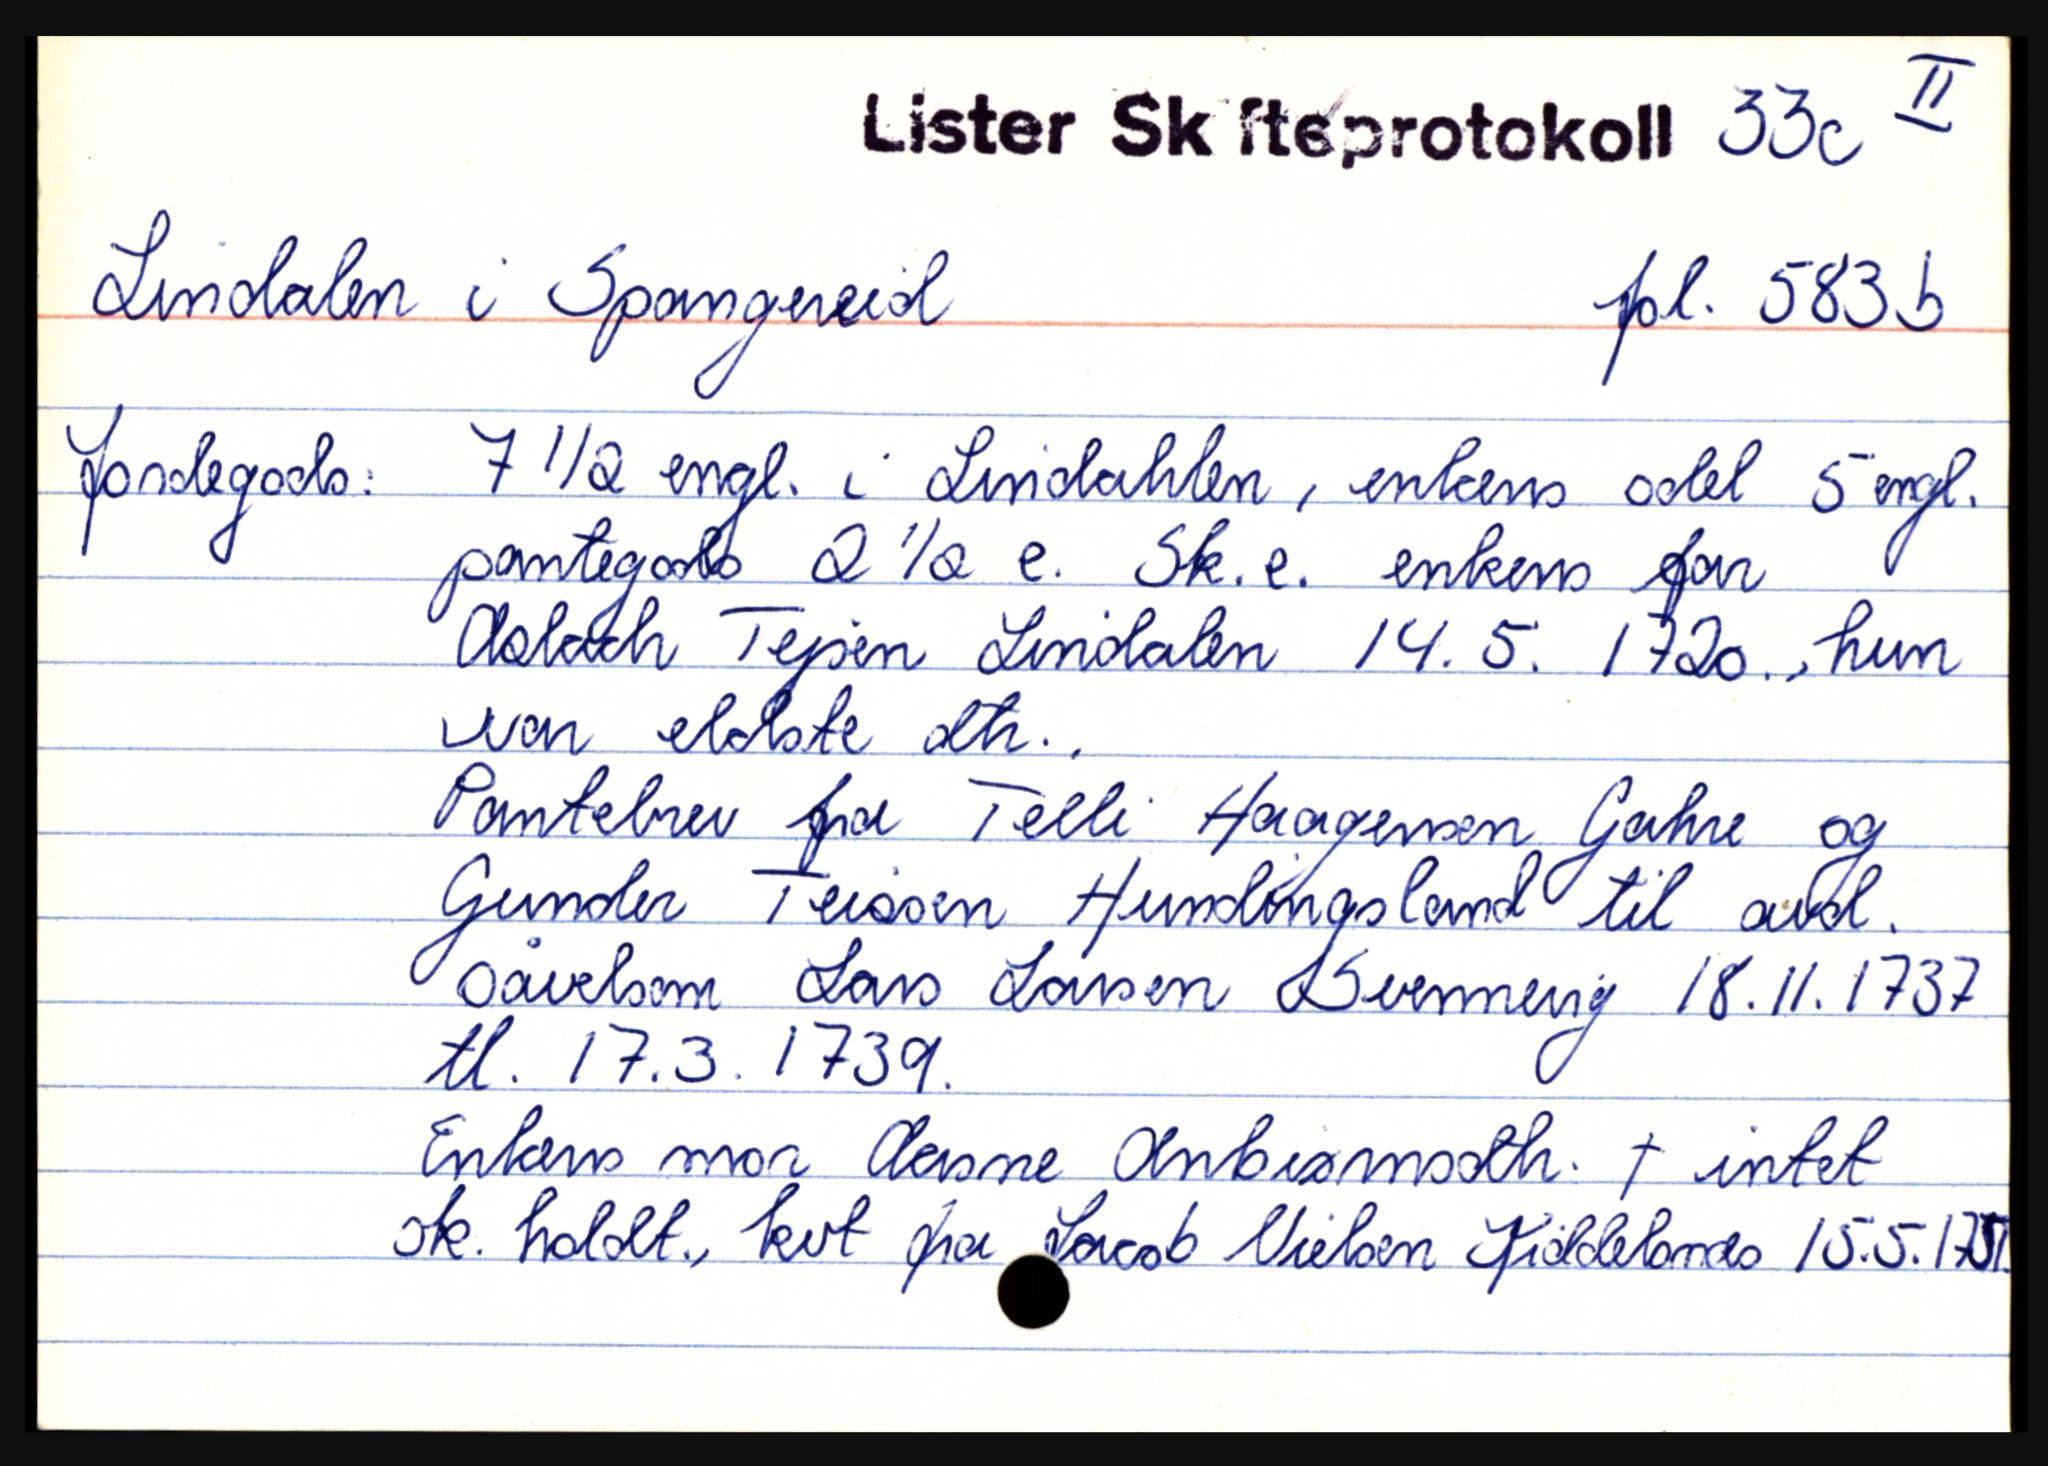 Lister Skifteprotokoll 33c II
Lindalen i Spangereid fol. 583b
Jordegods: 7 1/2 engl. i Lindahlen, enkens odel 5 engl.
pantegods 2 1/2 e. Sk. e. enkens far
Aslach Tejsen Lindalen 14. 5. 1720., hun
var eldste dtr.,
Pantebrev fra Telli Haagensen Gahre og
Gunder Teissen Hundingsland til avd.
såvelsom Lars Larsen Svennevig 18. 11. 1737
tl. 17. 3. 1739.
Enkens mor Aasne Anbiørnsdtr. † intet
sk. holdt., kvt fra Jacob Nielsen Kiddelsnes 15.5.1751.